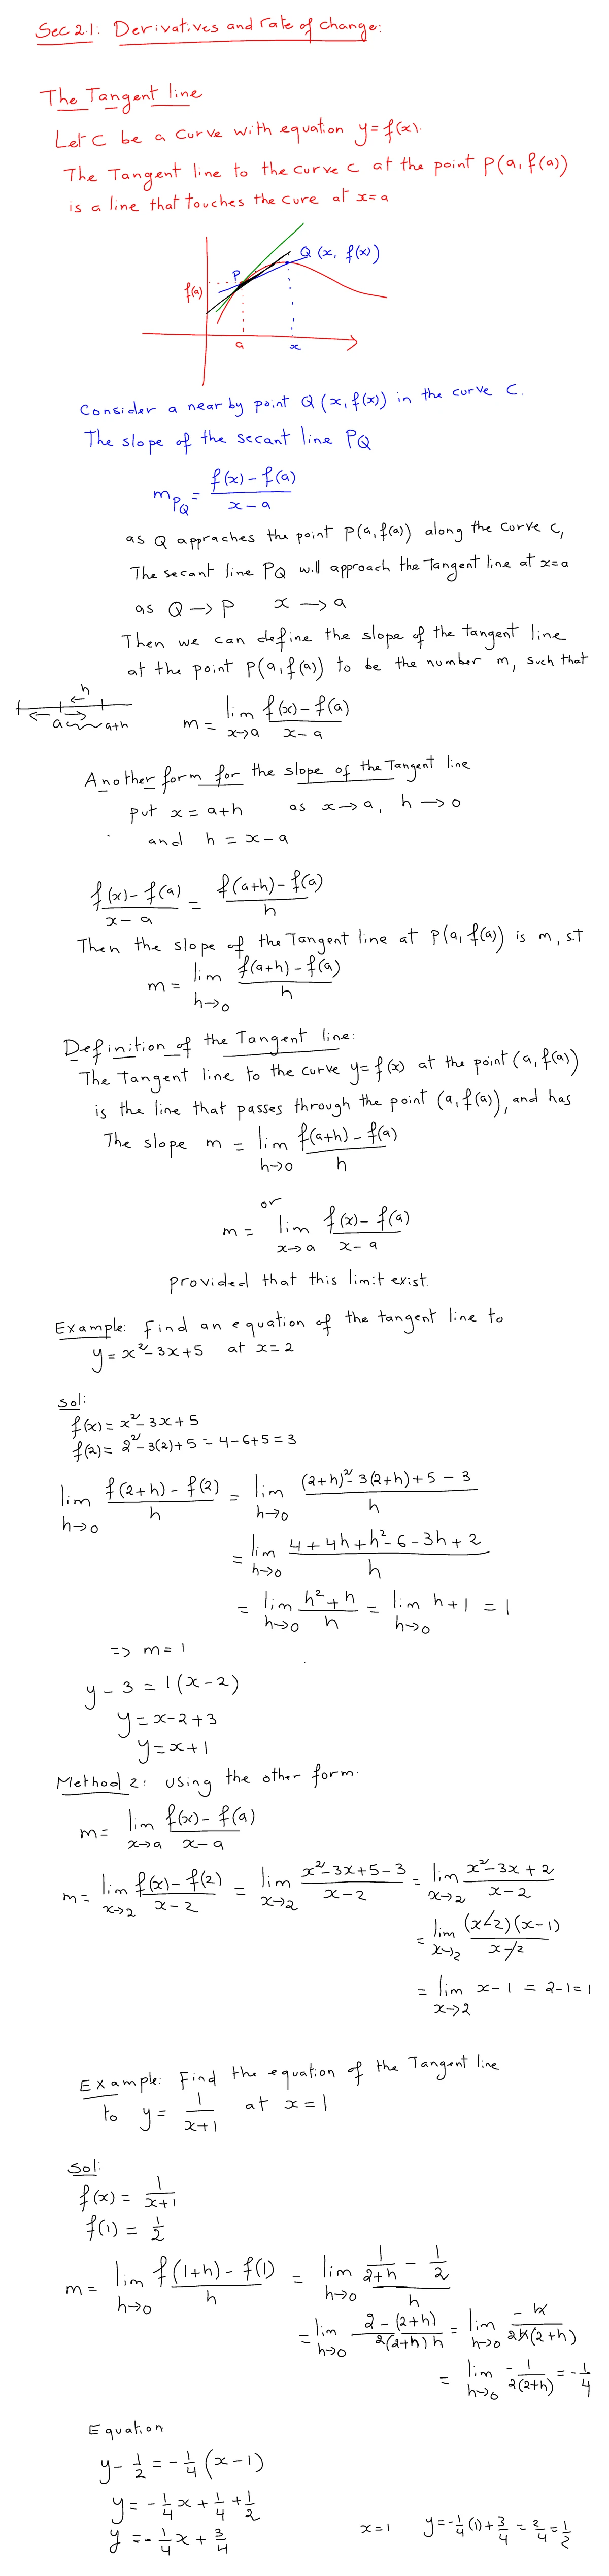 Sec 2.1: Derivatives and rate of change:
The Tangent line
Let C be a curve with equation y=f(x).
The Tangent line to the curve C at the point P(a, f(a))
is a line that touches the cure at x=a
Q (x, f(x))
P
f(a)
a
x
Consider a near by point Q(x, f(x)) in the curve C.
The slope of the secant line PQ
m_PQ = (f(x) - f(a))/(x - a)
as Q appraches the point P(a, f(a)) along the curve C,
The secant line PQ will approach the Tangent line at x=a
as Q → P x → a
Then we can define the slope of the tangent line
at the point P(a, f(a)) to be the number m, such that
h
a
a+h
m = lim x→a (f(x) - f(a))/(x - a)
Another form for the slope of the Tangent line
put x = a+h as x → a, h → 0
and h = x - a
(f(x) - f(a))/(x - a) = (f(a+h) - f(a))/h
Then the slope of the Tangent line at P(a, f(a)) is m, s.t
m = lim h→0 (f(a+h) - f(a))/h
Definition of the Tangent line:
The Tangent line to the curve y=f(x) at the point (a, f(a))
is the line that passes through the point (a, f(a)), and has
The slope m = lim h→0 (f(a+h) - f(a))/h
or
m = lim x→a (f(x) - f(a))/(x - a)
provided that this limit exist.
Example: Find an equation of the tangent line to
y = x² - 3x + 5 at x = 2
Sol:
f(x) = x² - 3x + 5
f(2) = 2² - 3(2) + 5 = 4 - 6 + 5 = 3
lim h→0 (f(2+h) - f(2))/h = lim h→0 ((2+h)² - 3(2+h) + 5 - 3)/h
= lim h→0 (4 + 4h + h² - 6 - 3h + 2)/h
= lim h→0 (h² + h)/h = lim h→0 h + 1 = 1
=> m = 1
y - 3 = 1(x - 2)
y = x - 2 + 3
y = x + 1
Method 2: using the other form.
m = lim x→a (f(x) - f(a))/(x - a)
m = lim x→2 (f(x) - f(2))/(x - 2) = lim x→2 (x² - 3x + 5 - 3)/(x - 2) = lim x→2 (x² - 3x + 2)/(x - 2)
= lim x→2 ((x - 2)(x - 1))/(x - 2)
= lim x→2 x - 1 = 2 - 1 = 1
Example: Find the equation of the Tangent line
to y = 1/(x+1) at x = 1
Sol:
f(x) = 1/(x+1)
f(1) = 1/2
m = lim h→0 (f(1+h) - f(1))/h = lim h→0 (1/(2+h) - 1/2)/h
= lim h→0 (2 - (2+h))/(2(2+h)h) = lim h→0 -h/(2h(2+h))
= lim h→0 -1/(2(2+h)) = -1/4
Equation
y - 1/2 = -1/4 (x - 1)
y = -1/4 x + 1/4 + 1/2
y = -1/4 x + 3/4
x = 1 y = -1/4 (1) + 3/4 = 2/4 = 1/2